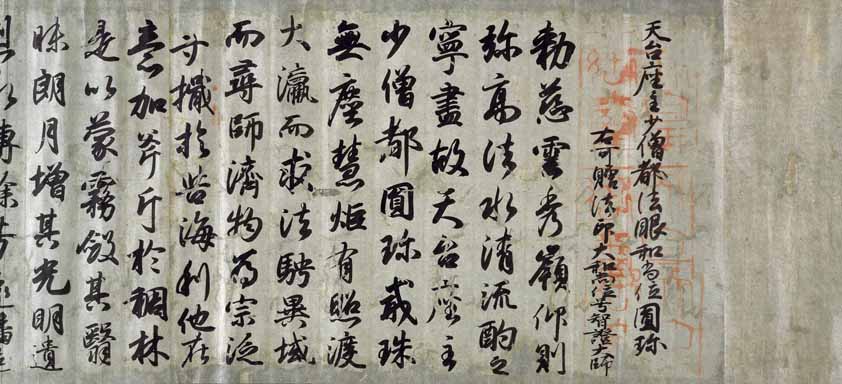 天台座主少僧都法眼和尚位圓珎
右可贈法印大和尚位号智證大師
勅慈雲秀嶺仰則
弥高法水清流酌之
寧盡故天台座主
少僧都圓珎戒珠
無塵慧炬有照渡
大瀛而求法騁異域
而尋師濟物為宗泛
寸檝於苦海利他在
意加斧斤於稠林
是以蒙霧斂其翳
昧朗月増其光明遺